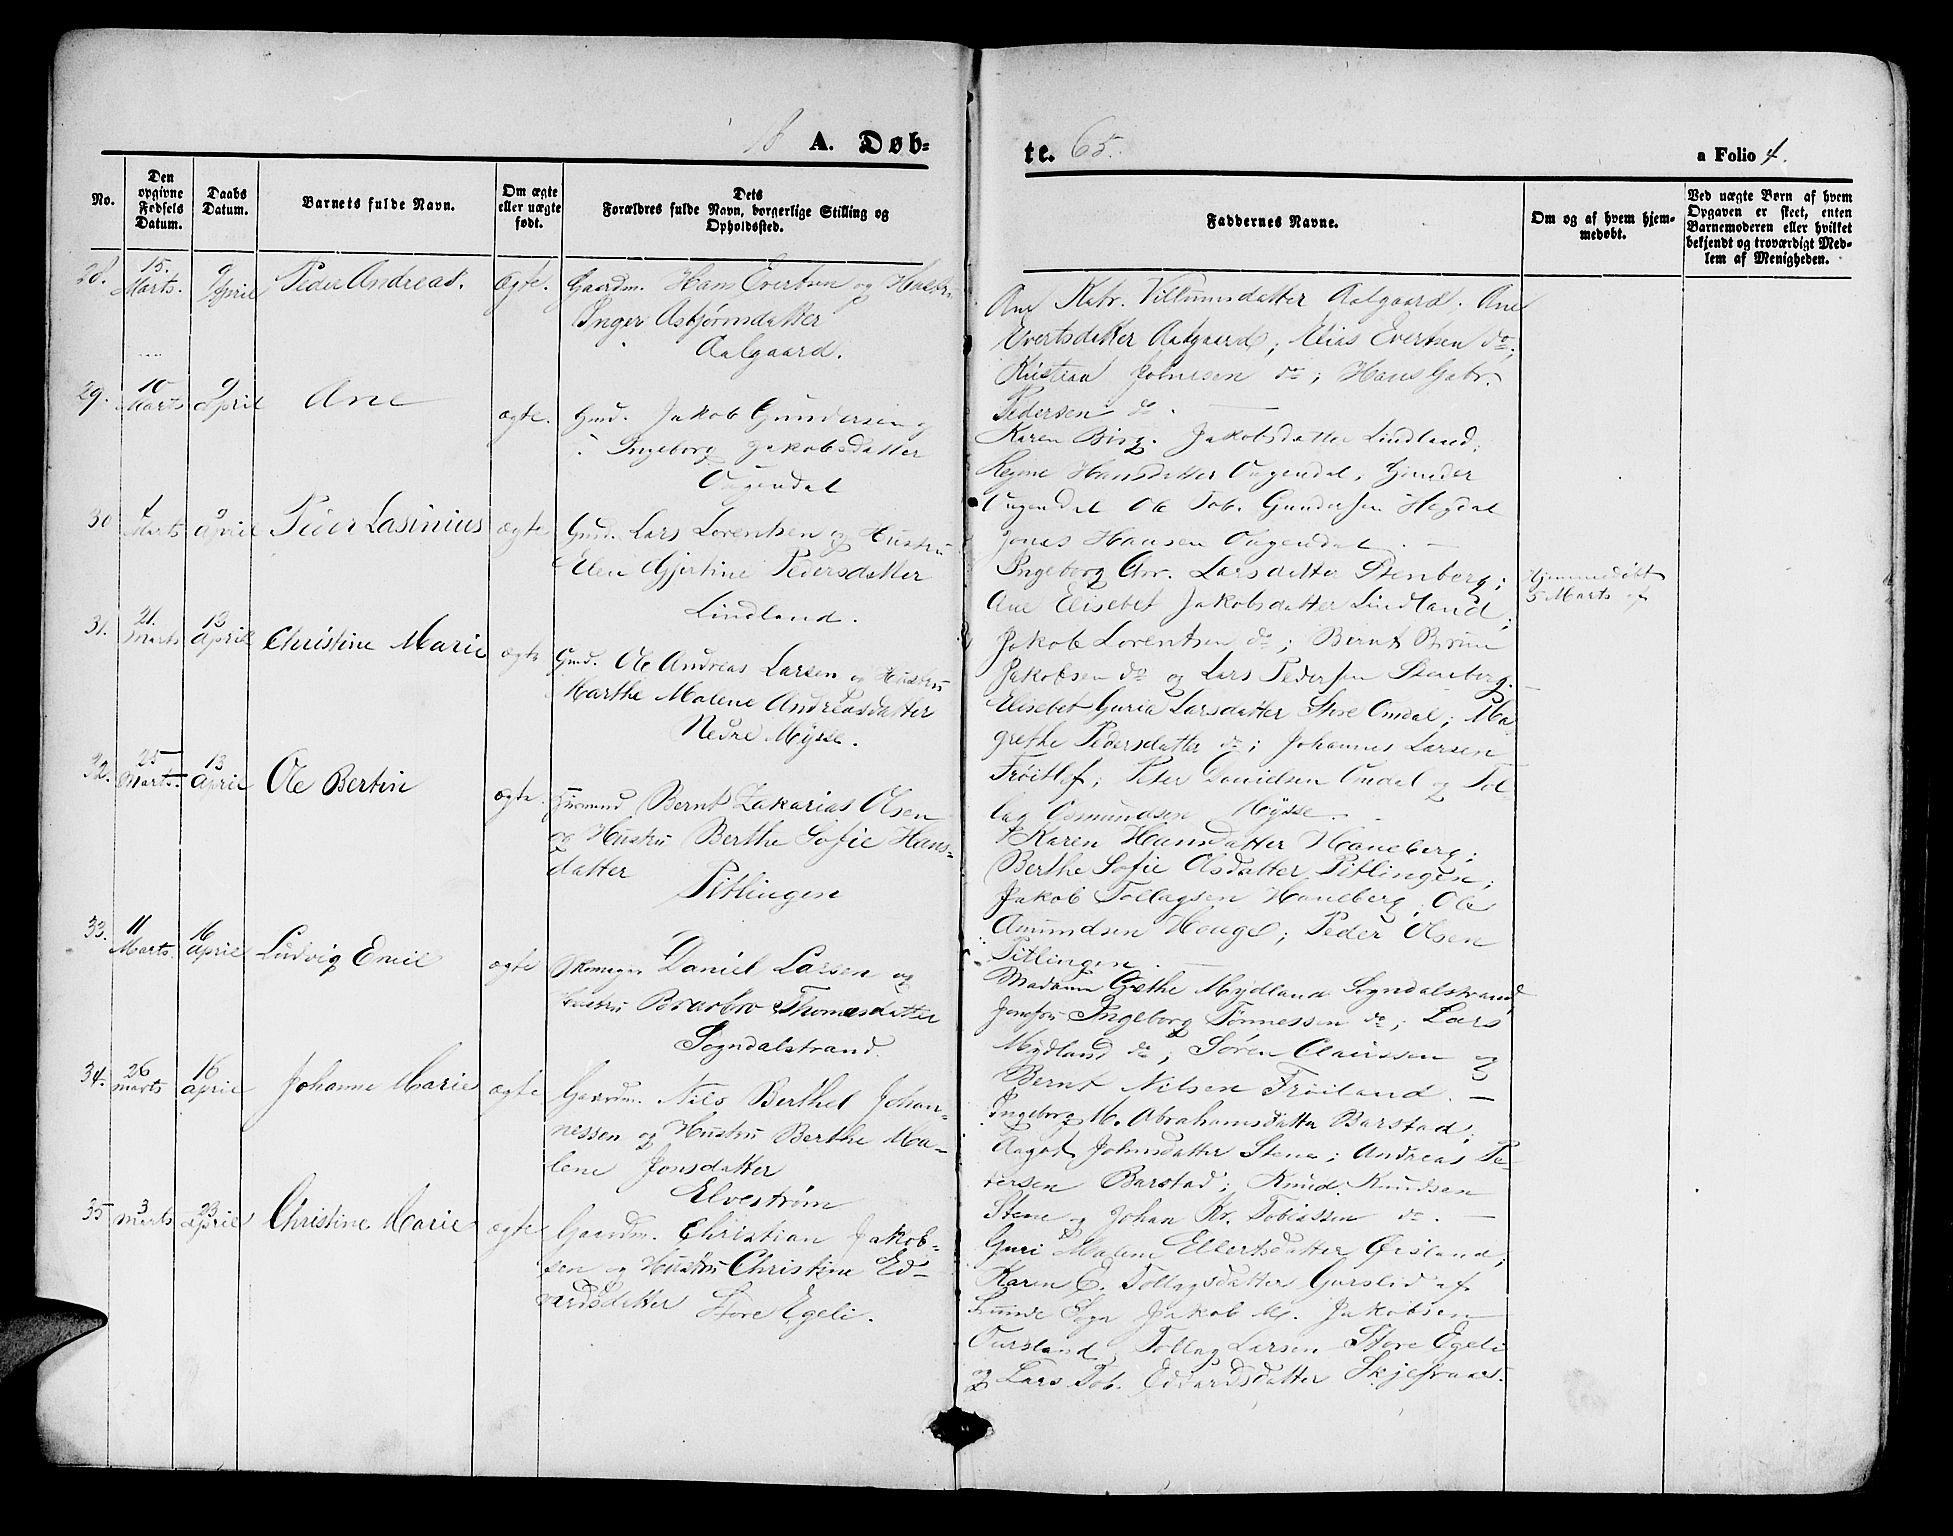 A. Døb-
te. 65.
a Folio 4.
No.
Den opgivne Fødsels Datum.
Daabs Datum.
Barnets fulde Navn.
Om ægte eller uægte født.
Dets Forældres fulde Navn, borgerlige Stilling og Opholdssted.
Faddernes Navne.
Om og af hvem hjemmedøbt.
Ved uægte Børn af hvem Opgaven er skeet, enten Barnemoderen eller hvilket bekjendt og troværdigt Medlem af Menigheden.
28. 15. Marts. 9 April Peder Andreas. Ægte. Gaardm. Hans Evertsen og Hustru
Inger Asbjørnsdatter
Aalgaard.
Ane Katr. Villumsdatter Aalgaard. Ane
Evertsdatter Aalgaard; Elias Evertsen do;
Kristian Johnesen do; Hans Gabr.
Pedersen do.
29. 10 Marts 9 April Ane ægte. Gmd. Jakob Gundersen og
Ingeborg Jakobsdatter
Ougendal
Karen Birg. Jakobsdatter Lindland;
Regine Hansdatter Ougendal, Gunder
Ougendal Ole Tob. Gundersen Hegdal
Jonas Hansen Ougendal.
30 1 Marts 9 April Peder Lasinius ægte Gmd. Lars Lorentsen og Hustru
Elen Gjertine Pedersdatter
Lindland.
Ingeborg Chr. Larsdatter Stenberg;
Ane Elisebet Jakobsdatter Lindland;
Jakob Lorentsen do; Bernt Bruun
Jakobsen do og Lars Pedersen Stenberg.
Hjemmedøbt
5 Marts af
31. 21. Marts 13 April Christine Marie ægte Gmd. Ole Andreas Larsen og Hustru
Marthe Malene Andreasdatter
Nedre Mysse.
Elisebet Guria Larsdatter Store Omdal; Ma-
grethe Pedersdatter do; Johannes Larsen
Frøitlof; Peter Danielsen Omdal og Tol-
lag Osmundsen Mysse.
32. 25 Marts. 13 April Ole Bertin ægte. Huusmnd Bernt Zakarias Olsen
og Hustru Berthe Sofie Hans-
datter
Pitlingen
Karen Hansdatter Haneberg;
Berthe Sofie Olsdatter Pitlingen;
Jakob Tollagsen Haneberg; Ole
Amundsen Houge; Peder Olsen
Pitlingen.
33. 11 Marts. 16 April Ludvig Emil ægte Skomager Daniel Larsen og
Hustru Braarbro Thomasdatter
Sogndalstrand.
Madame Grethe Mydland Sogndalstrand,
Jomfru Ingeborg Tønnessen do; Lars
Mydland do; Søren Claussen og
Bernt Nilsen Frøiland.
34. 26 marts 16 April Johanne Marie ægte Gaardm. Nils Berthel Johan-
nessen og Hustru Berthe Ma-
lene Jonsdatter
Elvestrøm
Ingeborg M. Abrahamsdatter Barstad;
Aagot Johnsdatter Stene; Andreas Pe-
dersen Barstad; Knud Knudsen
Stene og Johan Kr. Tobiassen do.
35 3 marts 23 April Christine Marie ægte Gaardm. Christian Jakob-
sen og Hustru Christine Ed-
vardsdatter Store Egeli.
Guri Malene Ellertsdatter Ørsland;
Karen E. Tollagsdatter Gurslid af
Lunde Sogn Jakob M. Jakobsen
Oursland, Tollag Larsen Store Egeli
og Lars Tob. Edvardsdatter Skjefraas.